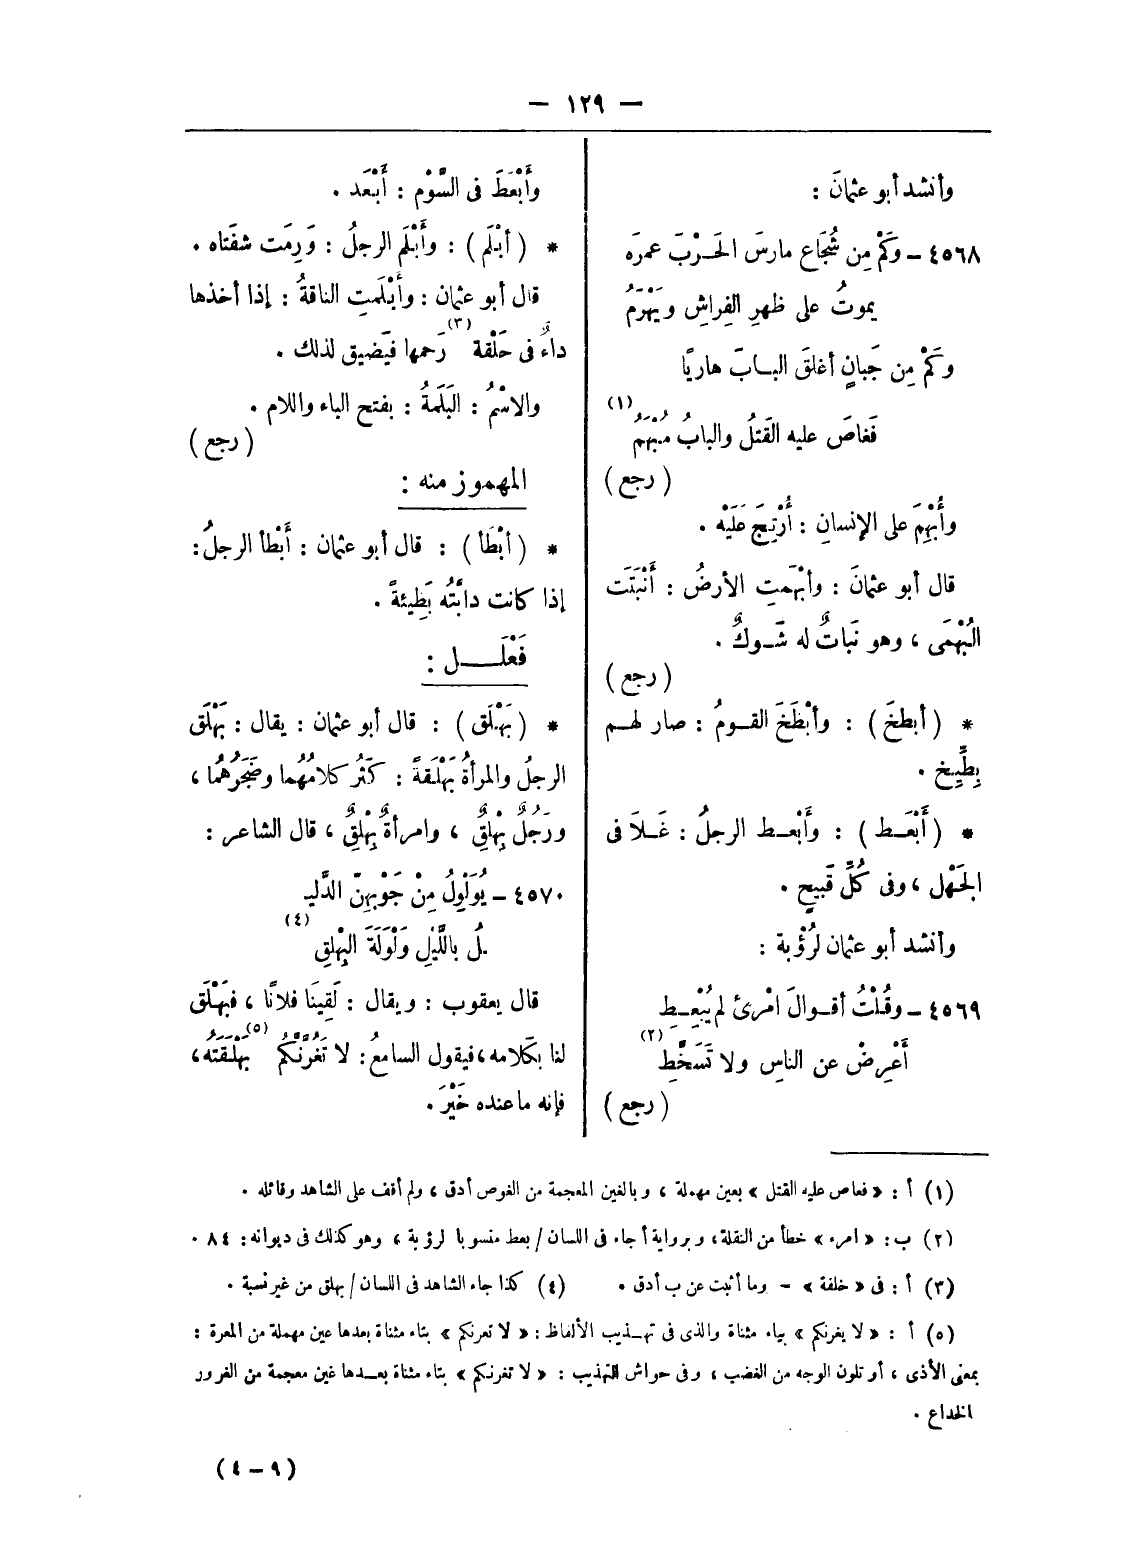 — ١٢٩ —
وأنشد أبو عثمانَ :
٤٥٦٨ – وَكَمْ مِن شُجَاع مارسَ الحَرْبَ عمرَه
يموتُ على ظهرِ الفِراشِ ويَهْرَمُ
وكَمْ مِن جَبانٍ أغلقَ البابَ هاربًا
فَغاصَ عليه القَتلُ والبابُ مُبْهَمُ (١)
( رجع )
وأُبْهِمَ على الإنسانِ : أُرْتِجَ عَلَيْه .
قال أبو عثمانَ : وأبْهَمَتِ الأرضُ : أَنْبَتَت
البُهْمَى ، وهو نَباتٌ له شَوكٌ .
( رجع )
* ( أبطخَ ) : وأبْطَخَ القومُ : صار لهم
بِطِّيخ .
* ( أَبْعَط ) : وأَبْعط الرجلُ : غَلاَ فى
الجَهْل ، وفى كُلِّ قَبيحٍ .
وأنشد أبو عثمان لرُؤْبة :
٤٥٦٩ – وقُلْتُ أقوالَ امْرِئ لم يُبْعِطِ
أَعْرِضْ عن الناسِ ولا تَسَخَّطِ (٢)
( رجع )
وأَبْعَطَ فى السَّوْم : أَبْعَد .
* ( أبْلَم ) : وأَبْلَم الرجلُ : وَرِمَت شفَتاه .
قال أبو عثمان : وأَبْلَمتِ الناقةُ : إذا أخذها
داءٌ فى حَلْقة (٣) رَحمها فيَضيق لذلك .
والاسْمُ : البَلَمةُ : بفتح الباء واللام .
( رجع )
المهموز منه :
* ( أبْطَأ ) : قال أبو عثمان : أَبْطأ الرجلُ :
إذا كانت دابَّتُه بَطِيئةً .
فَعْلَل :
* ( بَهْلَق ) : قال أبو عثمان : يقال : بَهْلَق
الرجلُ والمرأةُ بَهْلَقةً : كَثُر كلامُهُما وضَجَرُهُما ،
ورَجُلٌ بِهْلِقٌ ، وامرأةٌ بِهْلِقٌ ، قال الشاعر :
٤٥٧٠ – يُوَلْوِلُ مِنْ جَوْبِهِنّ الدَّليـ
ـلُ باللَّيْلِ وَلْوَلَةَ البِهْلِقِ (٤)
قال يعقوب : ويقال : لَقِينَا فلانًا ، فبَهْلَق
لنا بكَلامه ، فيقول السامعُ : لا تَغُرَّنَّكُم (٥) بَهْلَقَتُه ،
فإنه ما عنده خَيْرَ .
(١) أ : « فعاص عليه القتل » بعين مهملة ، وبالغين المعجمة من الغوص أدق ، ولم أقف على الشاهد وقائله .
(٢) ب : « امرء » خطأ من النقلة ، وبرواية أ جاء فى اللسان / بعط منسوبا لرؤبة ، وهو كذلك فى ديوانه : ٨٤ .
(٣) أ : فى « خلفة » – وما أثبت عن ب أدق . (٤) كذا جاء الشاهد فى اللسان / بهلق من غير نسبة .
(٥) أ : « لا يغرنكم » بياء مثناة والذى فى تهذيب الألفاظ : « لا تعرنكم » بتاء مثناة بعدها عين مهملة من المعرة :
بمعنى الأذى ، أو تلون الوجه من الغضب ، وفى حواش التهذيب : « لا تغرنكم » بتاء مثناة بعدها غين معجمة من الغرور
الخداع .
( ٩ – ٤ )